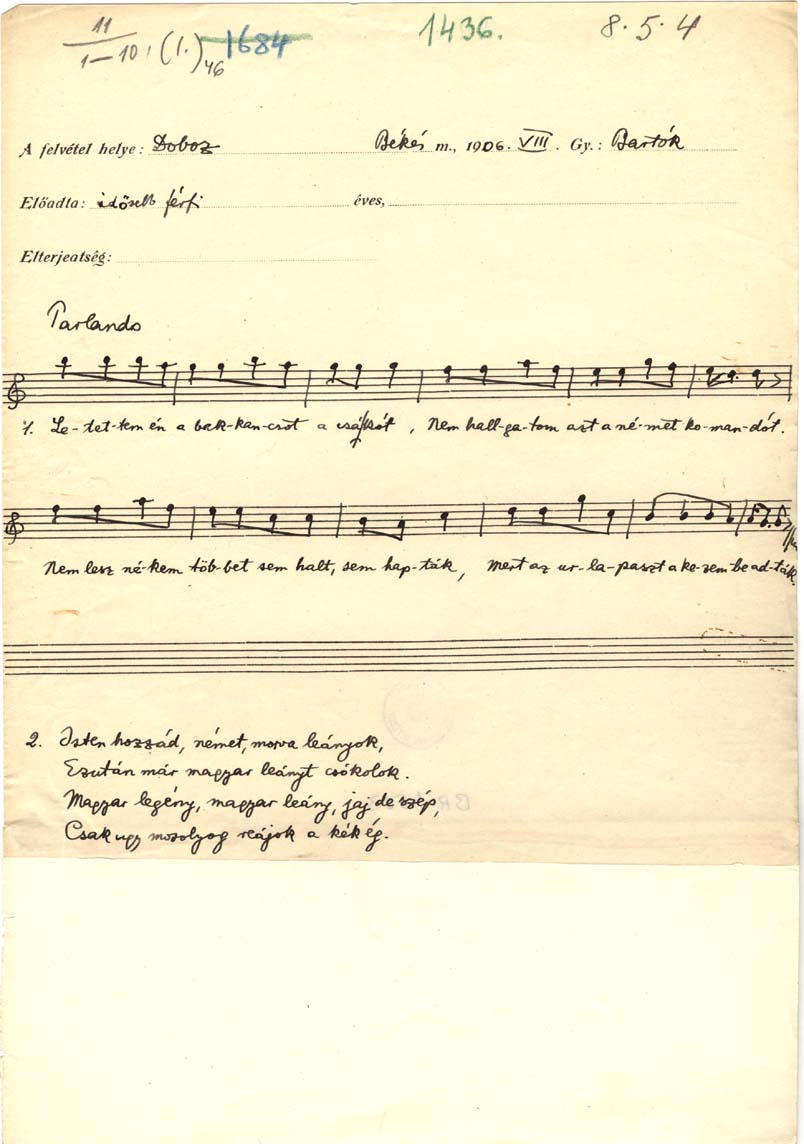 11
1–10, (1.)46 1684 1436. 8.5.4
A felvétel helye: Doboz Békés m., 1906. VIII. Gy.: Bartók
Előadta: idősebb férfi éves,
Elterjeatség:
Parlando
1. Le-tet-tem én a bak-kan-csot a csákót, Nem hall-ga-tom azt a né-met ko-man-dót.
Nem lesz né-kem töb-bet sem halt, sem hap-ták, Mert az ur-la-paszt a ke-zem-be ad-ták.
2. Isten hozzád, német, morva leányok,
Ezután már magyar leányt csókolok.
Magyar legény, magyar leány, jaj de szép,
Csak ugy mosolyog reájok a kék ég.